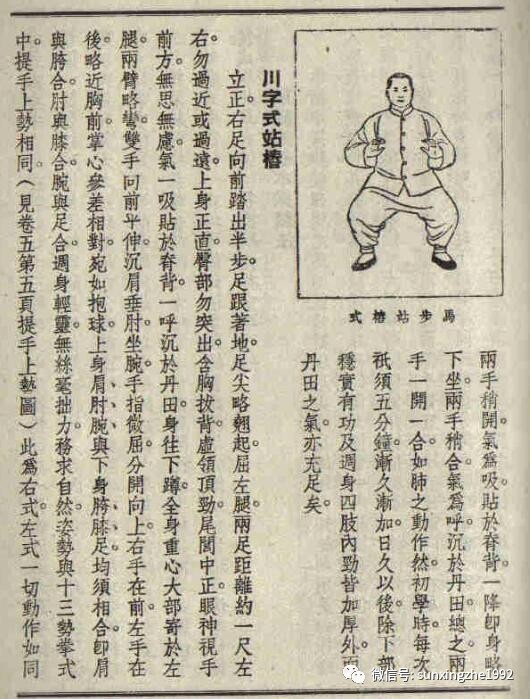 馬步站樁式
兩手稍開。氣為吸。貼於脊背。一降即身略
下坐。兩手稍合。氣為呼。沉於丹田。總之兩
手一開一合。如肺之動作然。初學時每次
祇須五分鐘。漸久漸加。日久以後。除下部
穩實有功。及週身四肢內勁皆加厚外。而
丹田之氣。亦充足矣。
川字式站樁
立正。右足向前踏出半步。足跟著地。足尖略翹起。屈左腿。兩足距離約一尺左
右。勿過近或過遠。上身正直。臀部勿突出。含胸拔背。虛領頂勁。尾閭中正。眼神視手
前方。無思無慮。氣一吸貼於脊背。一呼沉於丹田。身往下蹲。全身重心大部寄於左
腿。兩臂略彎。雙手向前平伸。沉肩垂肘。坐腕。手指微屈分開向上。右手在前。左手在
後。略近胸前。掌心參差相對。宛如抱球。上身肩、肘、腕、與下身胯、膝、足、均須相合。即肩
與胯合。肘與膝合。腕與足合。週身輕靈。無絲毫拙力。務求自然。姿勢與十三勢拳式
中提手上勢相同。（見卷五第五頁提手上勢圖）此為右式。左式一切動作如同
微信号: sunxingzhe1992